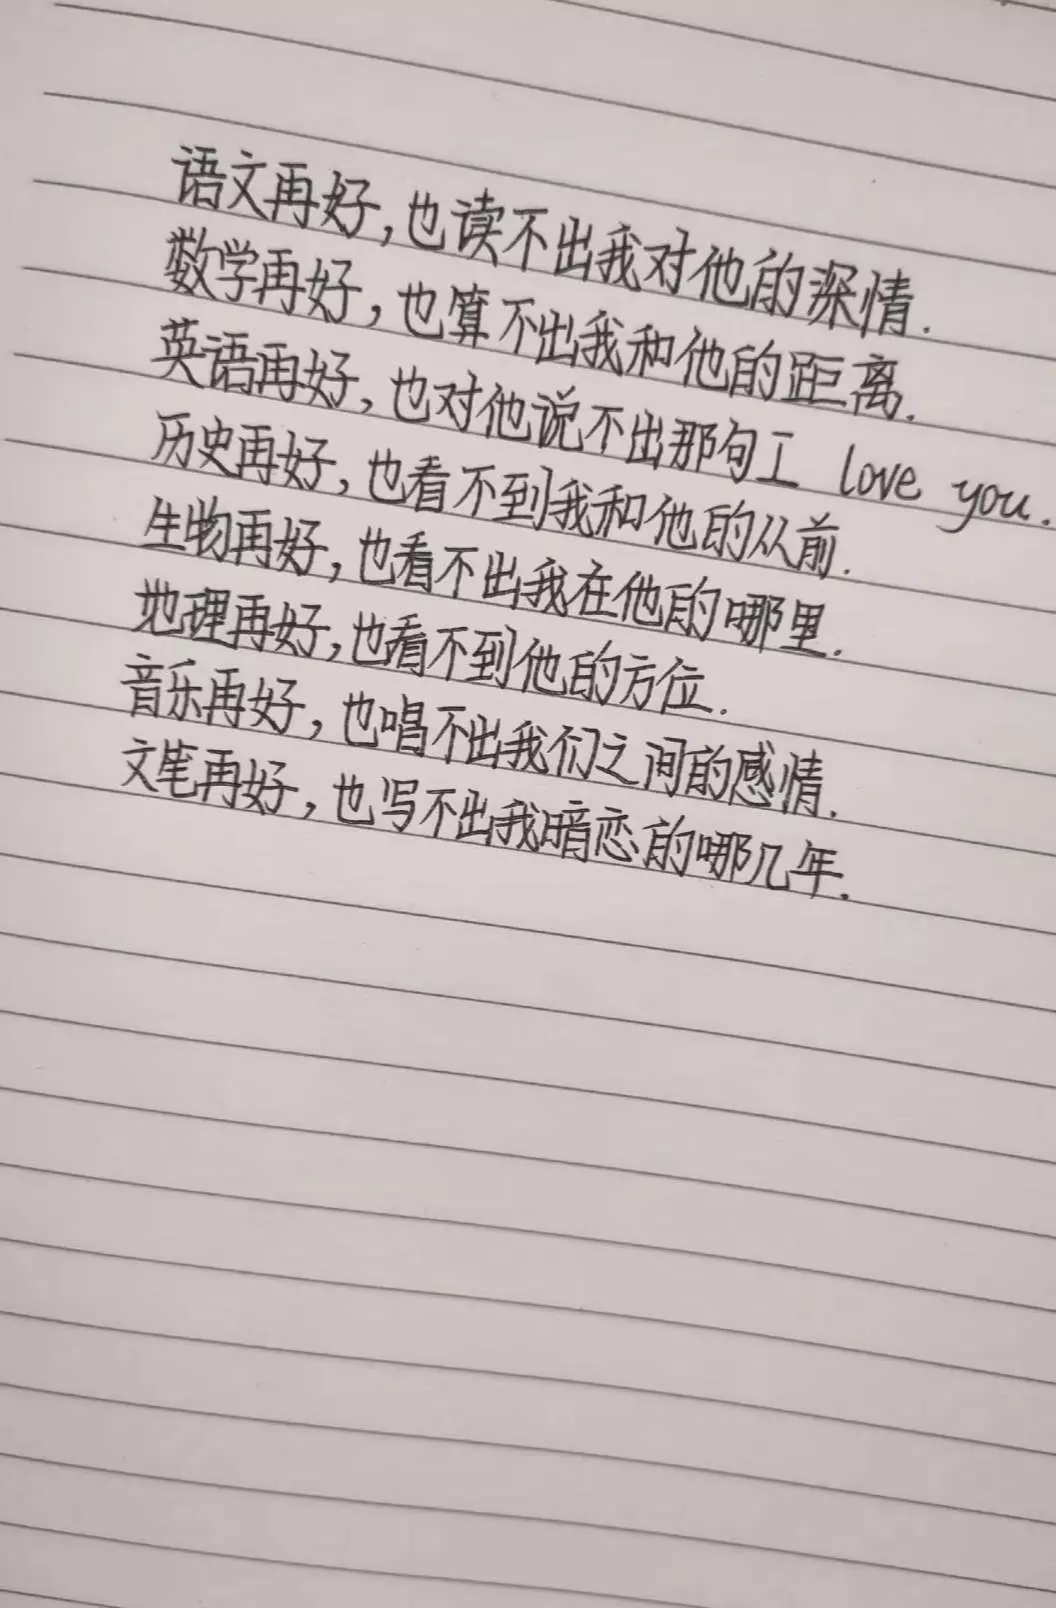 语文再好，也读不出我对他的深情.
数学再好，也算不出我和他的距离.
英语再好，也对他说不出那句I love you.
历史再好，也看不到我和他的从前.
生物再好，也看不出我在他的哪里.
地理再好，也看不到他的方位.
音乐再好，也唱不出我们之间的感情.
文笔再好，也写不出我暗恋的哪几年.